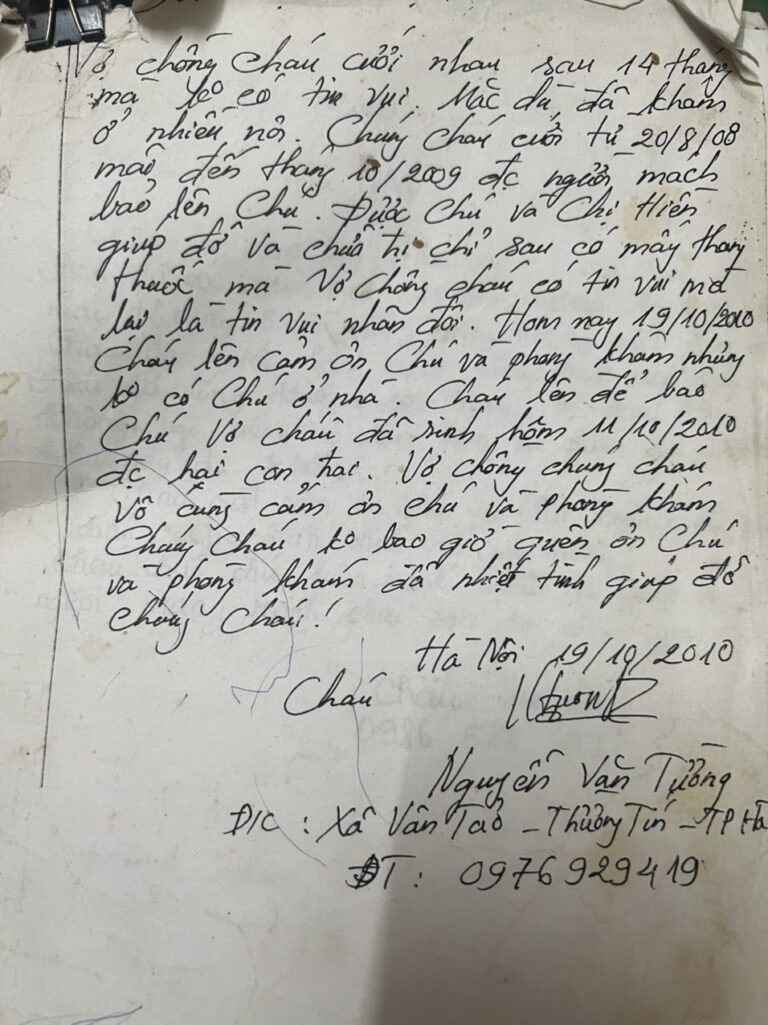 Vợ chồng cháu cưới nhau sau 14 tháng
mà ko có tin vui. Mặc dù đã khám
ở nhiều nơi. Chúng cháu cưới từ 20/8/08
mãi đến tháng 10/2009 đc người mách
bảo lên Chú. Được Chú và Chị Hiền
giúp đỡ và chữa trị chỉ sau có mấy thang
thuốc mà Vợ Chồng cháu có tin vui mà
lại là tin vui nhân đôi. Hôm nay 19/10/2010
Cháu lên cảm ơn Chú và phòng khám nhưng
ko có Chú ở nhà. Cháu lên để báo
Chú Vợ cháu đã sinh hôm 11/10/2010
đc hai con trai. Vợ chồng chúng cháu
vô cùng cảm ơn chú và phòng khám
Chúng Cháu ko bao giờ quên ơn Chú
và phòng khám đã nhiệt tình giúp đỡ
chúng cháu!
Hà Nội 19/10/2010
Cháu
Nguyễn Văn Tưởng
Đ/C : Xã Vân Tảo - Thường Tín - TP Hà
ĐT : 0976929419